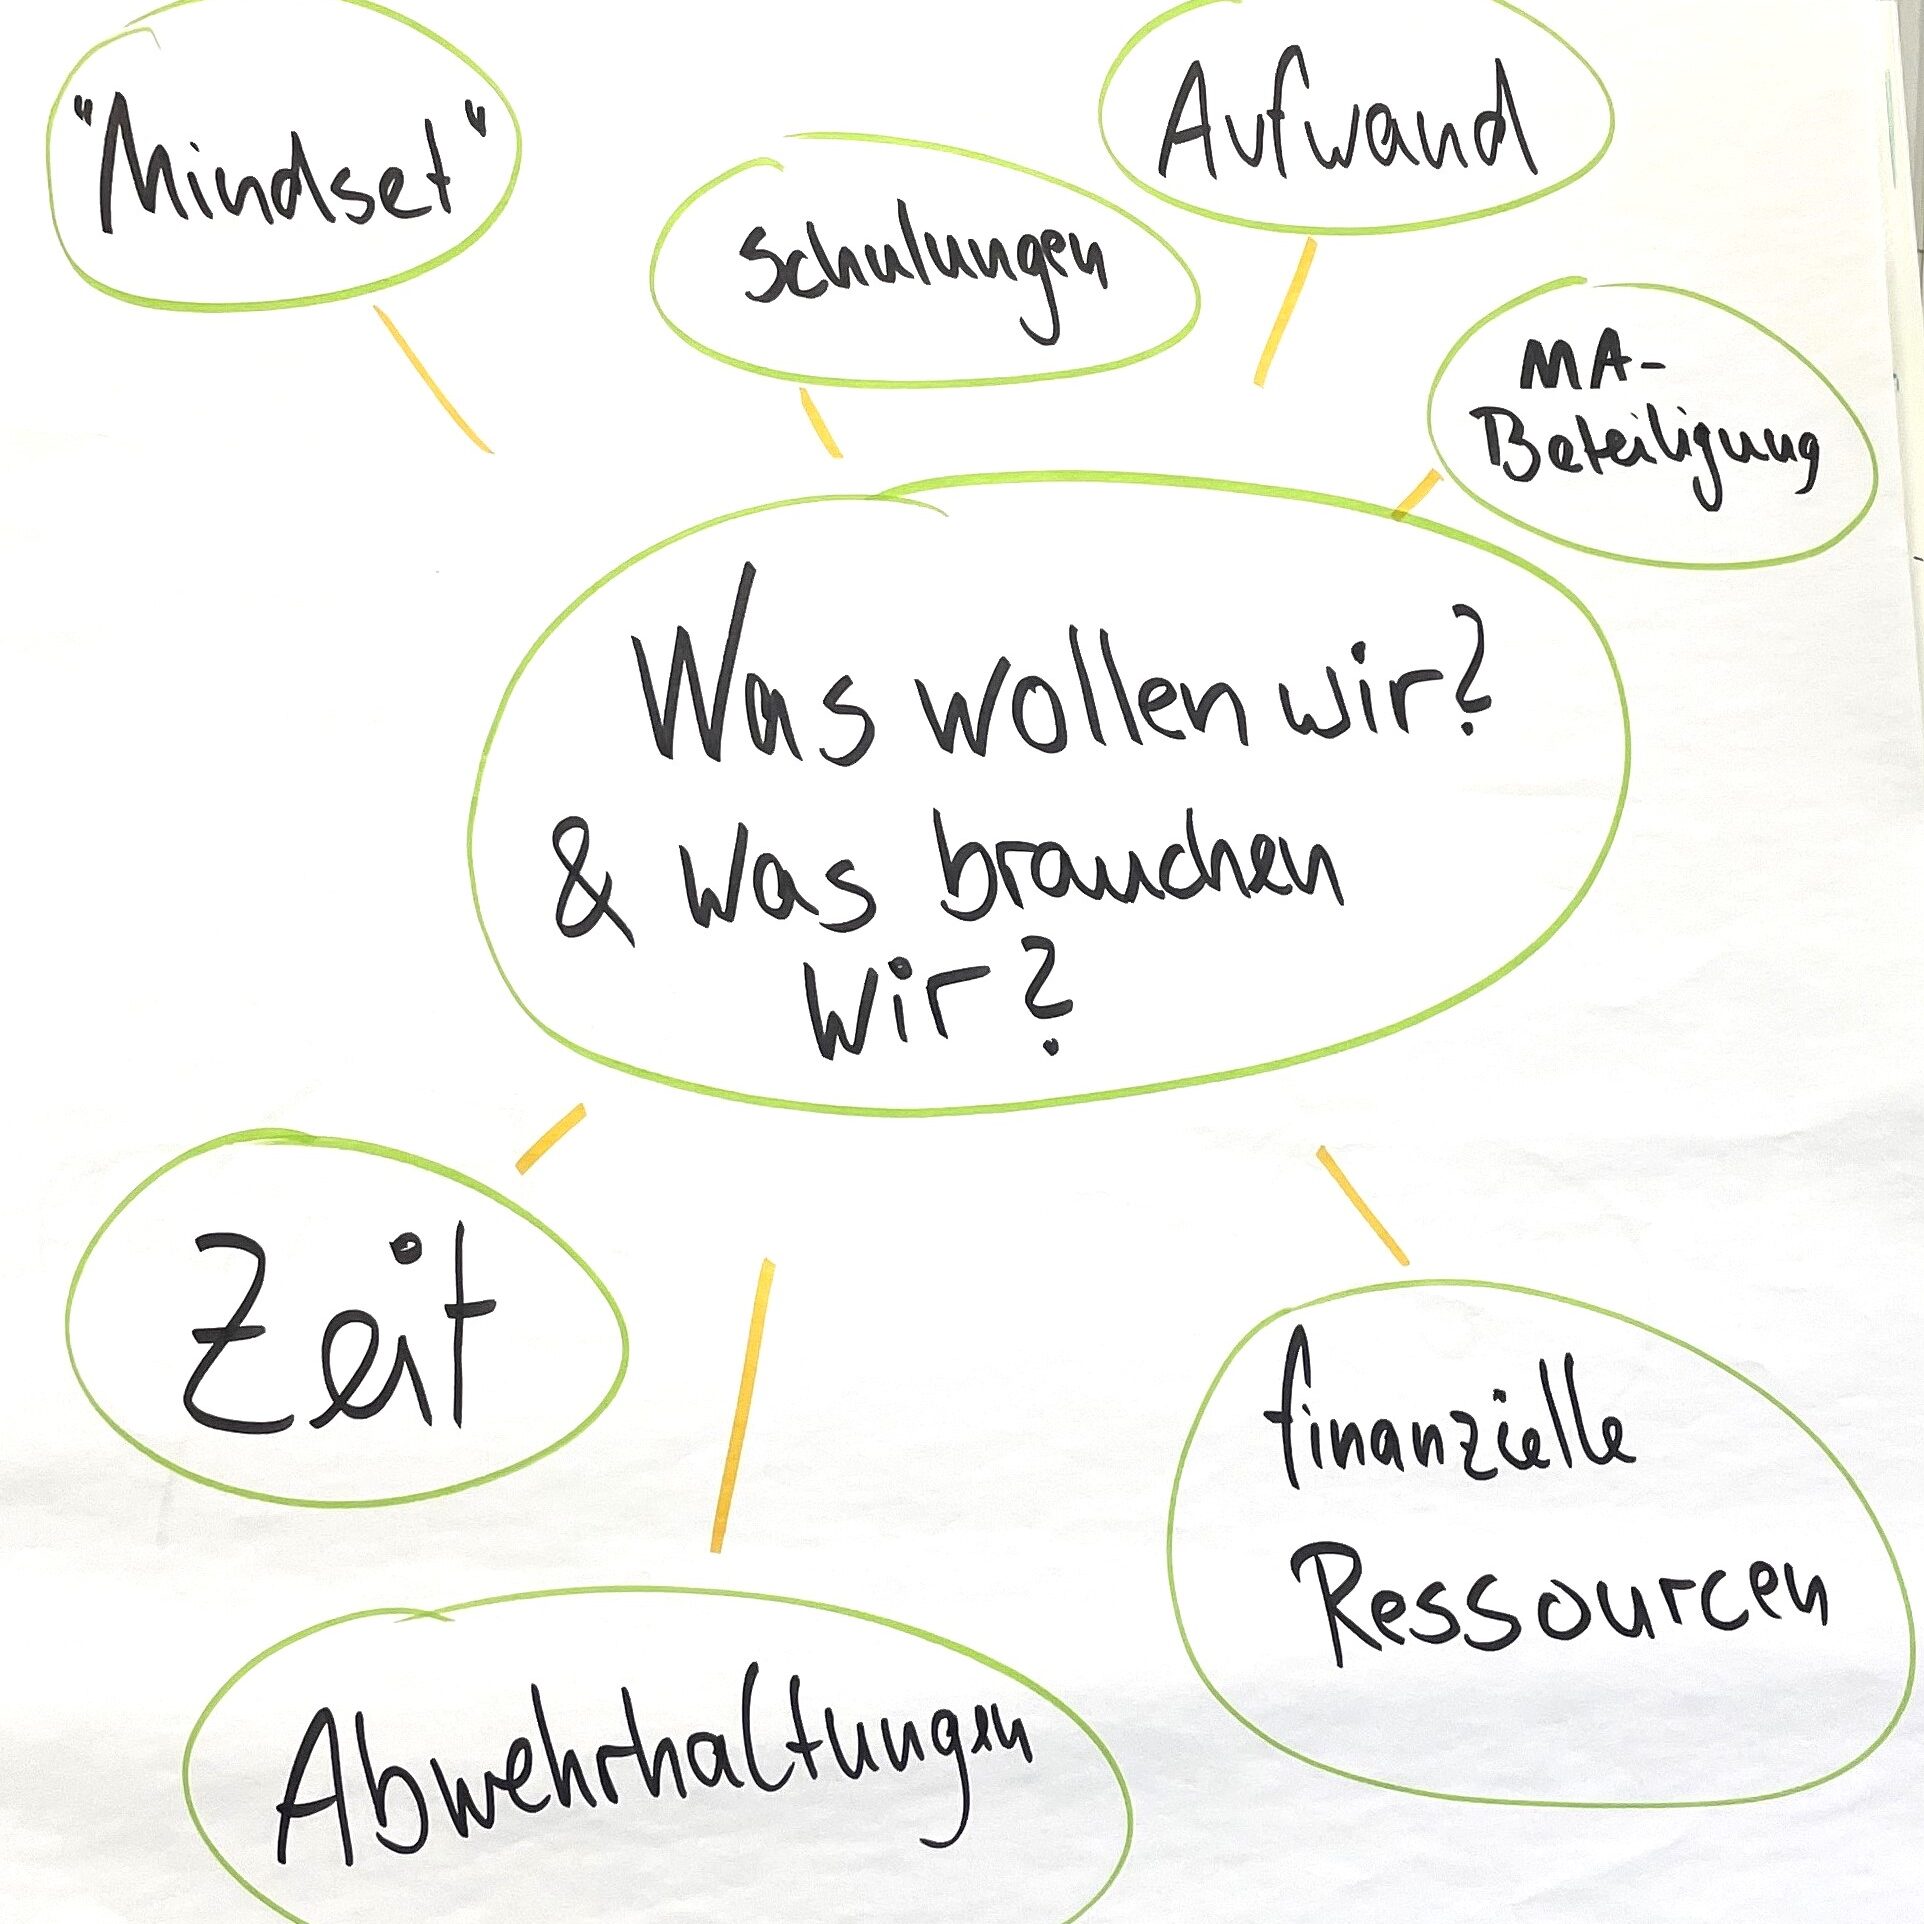 "Mindset"
Aufwand
Schulungen
MA-
Beteiligung
Was wollen wir?
& was brauchen
wir?
Zeit
finanzielle
Ressourcen
Abwehrhaltungen